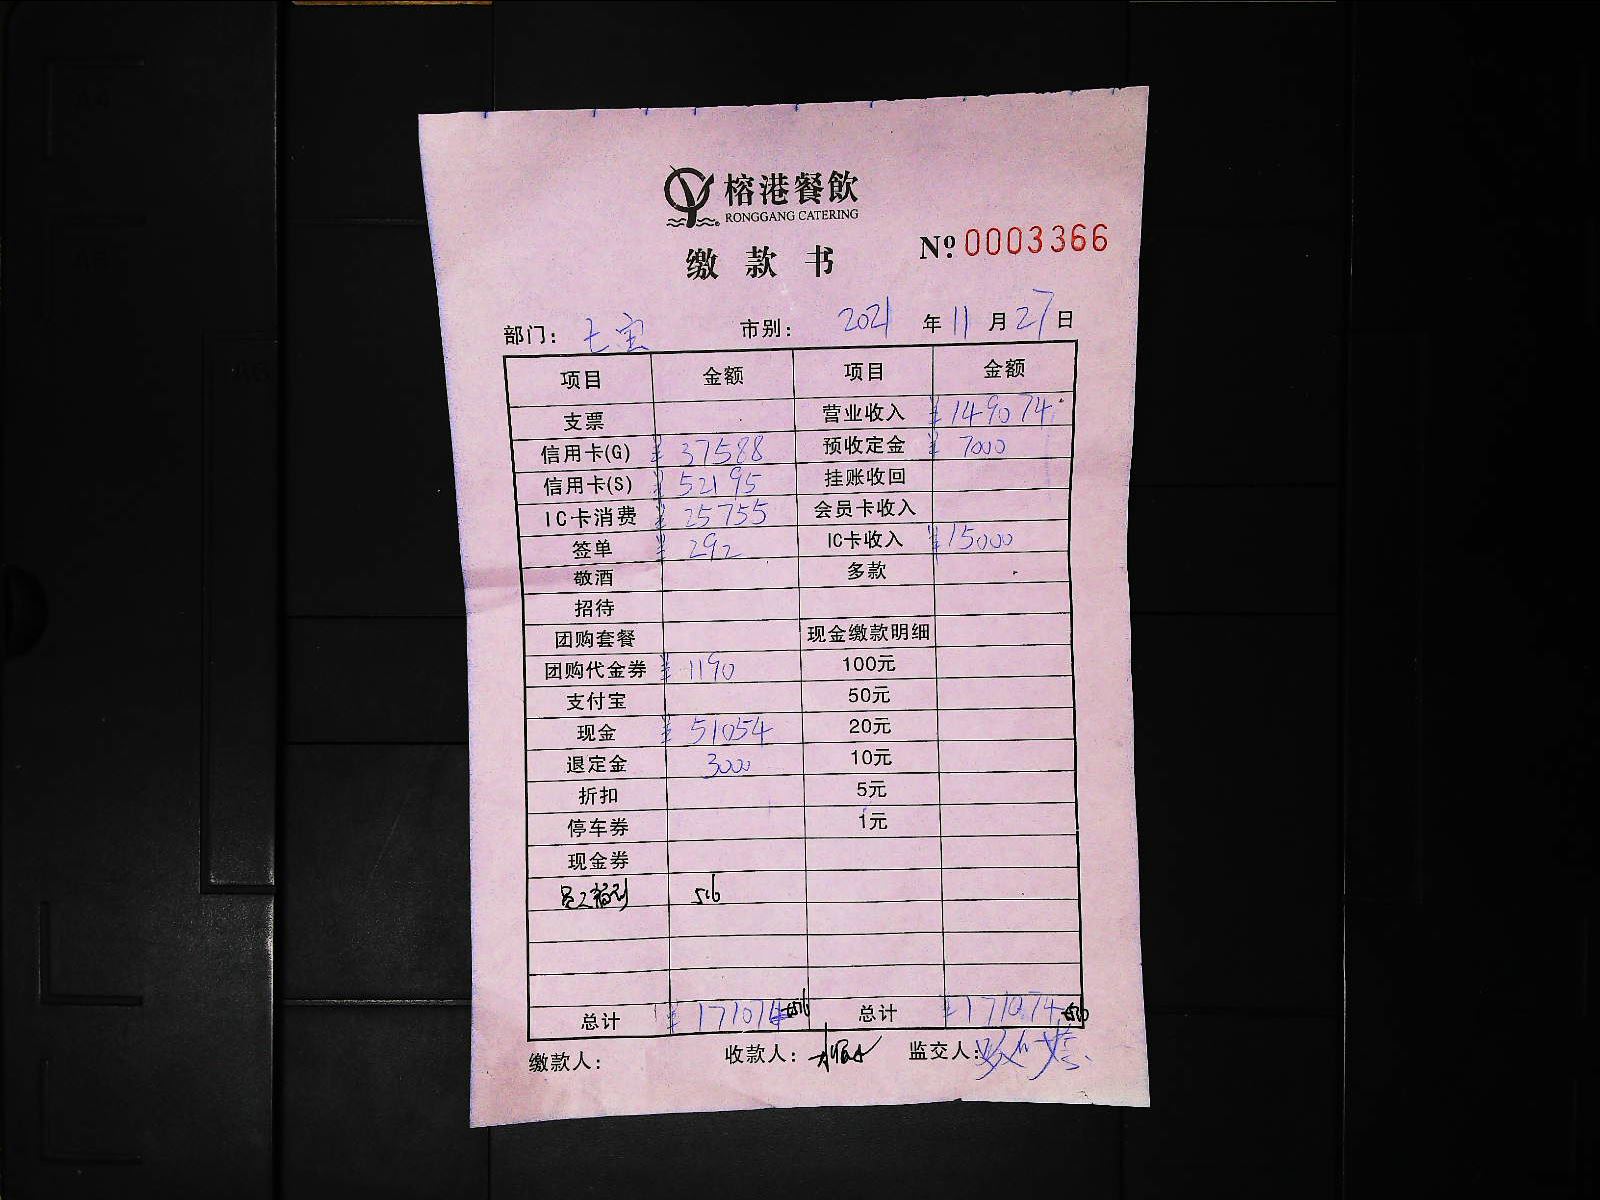 榕港餐飲
RONGGANG CATERING
缴款书 Nº 0003366
部门: 七宝 市别: 2021 年 11 月 27 日
项目 金额 项目 金额
支票 营业收入 ¥149074
信用卡(G) ¥37588 预收定金 ¥7000
信用卡(S) ¥52195 挂账收回
IC卡消费 ¥25755 会员卡收入
签单 ¥292 IC卡收入 ¥15000
敬酒 多款
招待
团购套餐 现金缴款明细
团购代金券 ¥1190 100元
支付宝 50元
现金 ¥51054 20元
退定金 3000 10元
折扣 5元
停车券 1元
现金券
员工福利 516
总计 ¥171074 总计 ¥171074
缴款人: 收款人: 监交人: